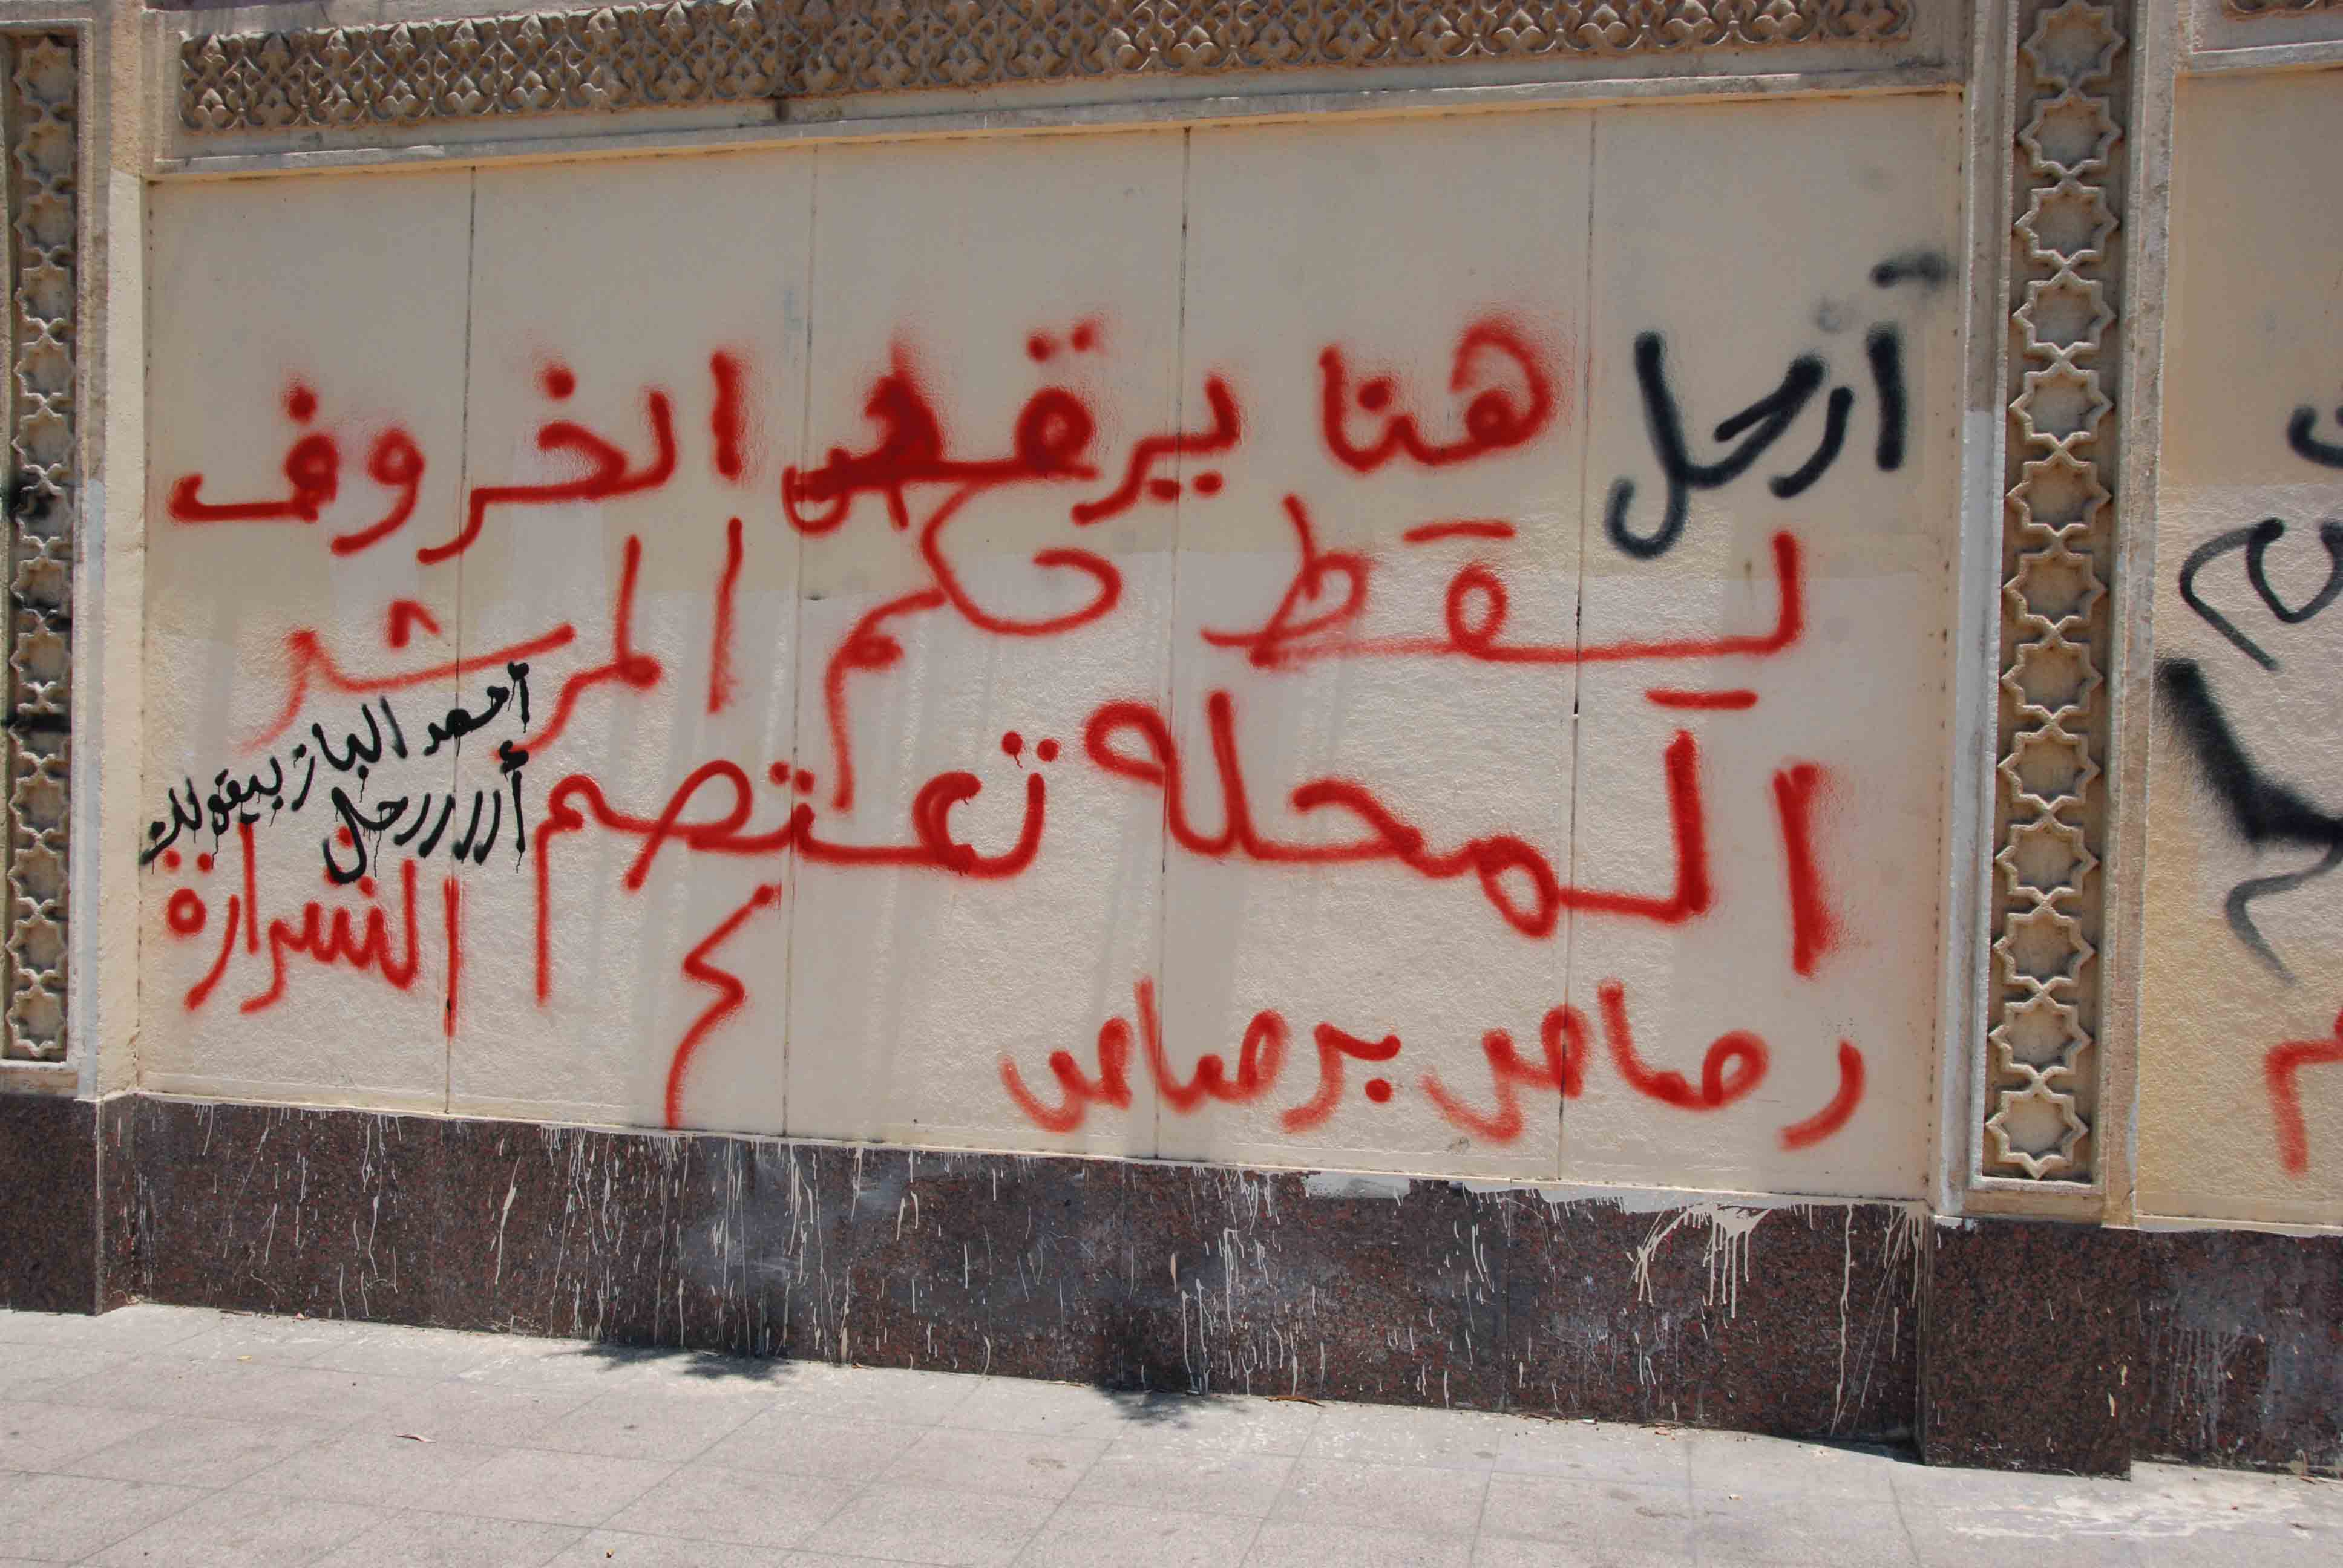 أرحل
هنا يرقص الخروف
يسقط حكم المرشد
المحله تعتصم
أحمد الباز بيقولك
أرررررحل
الشرارة
رصاص برصاص